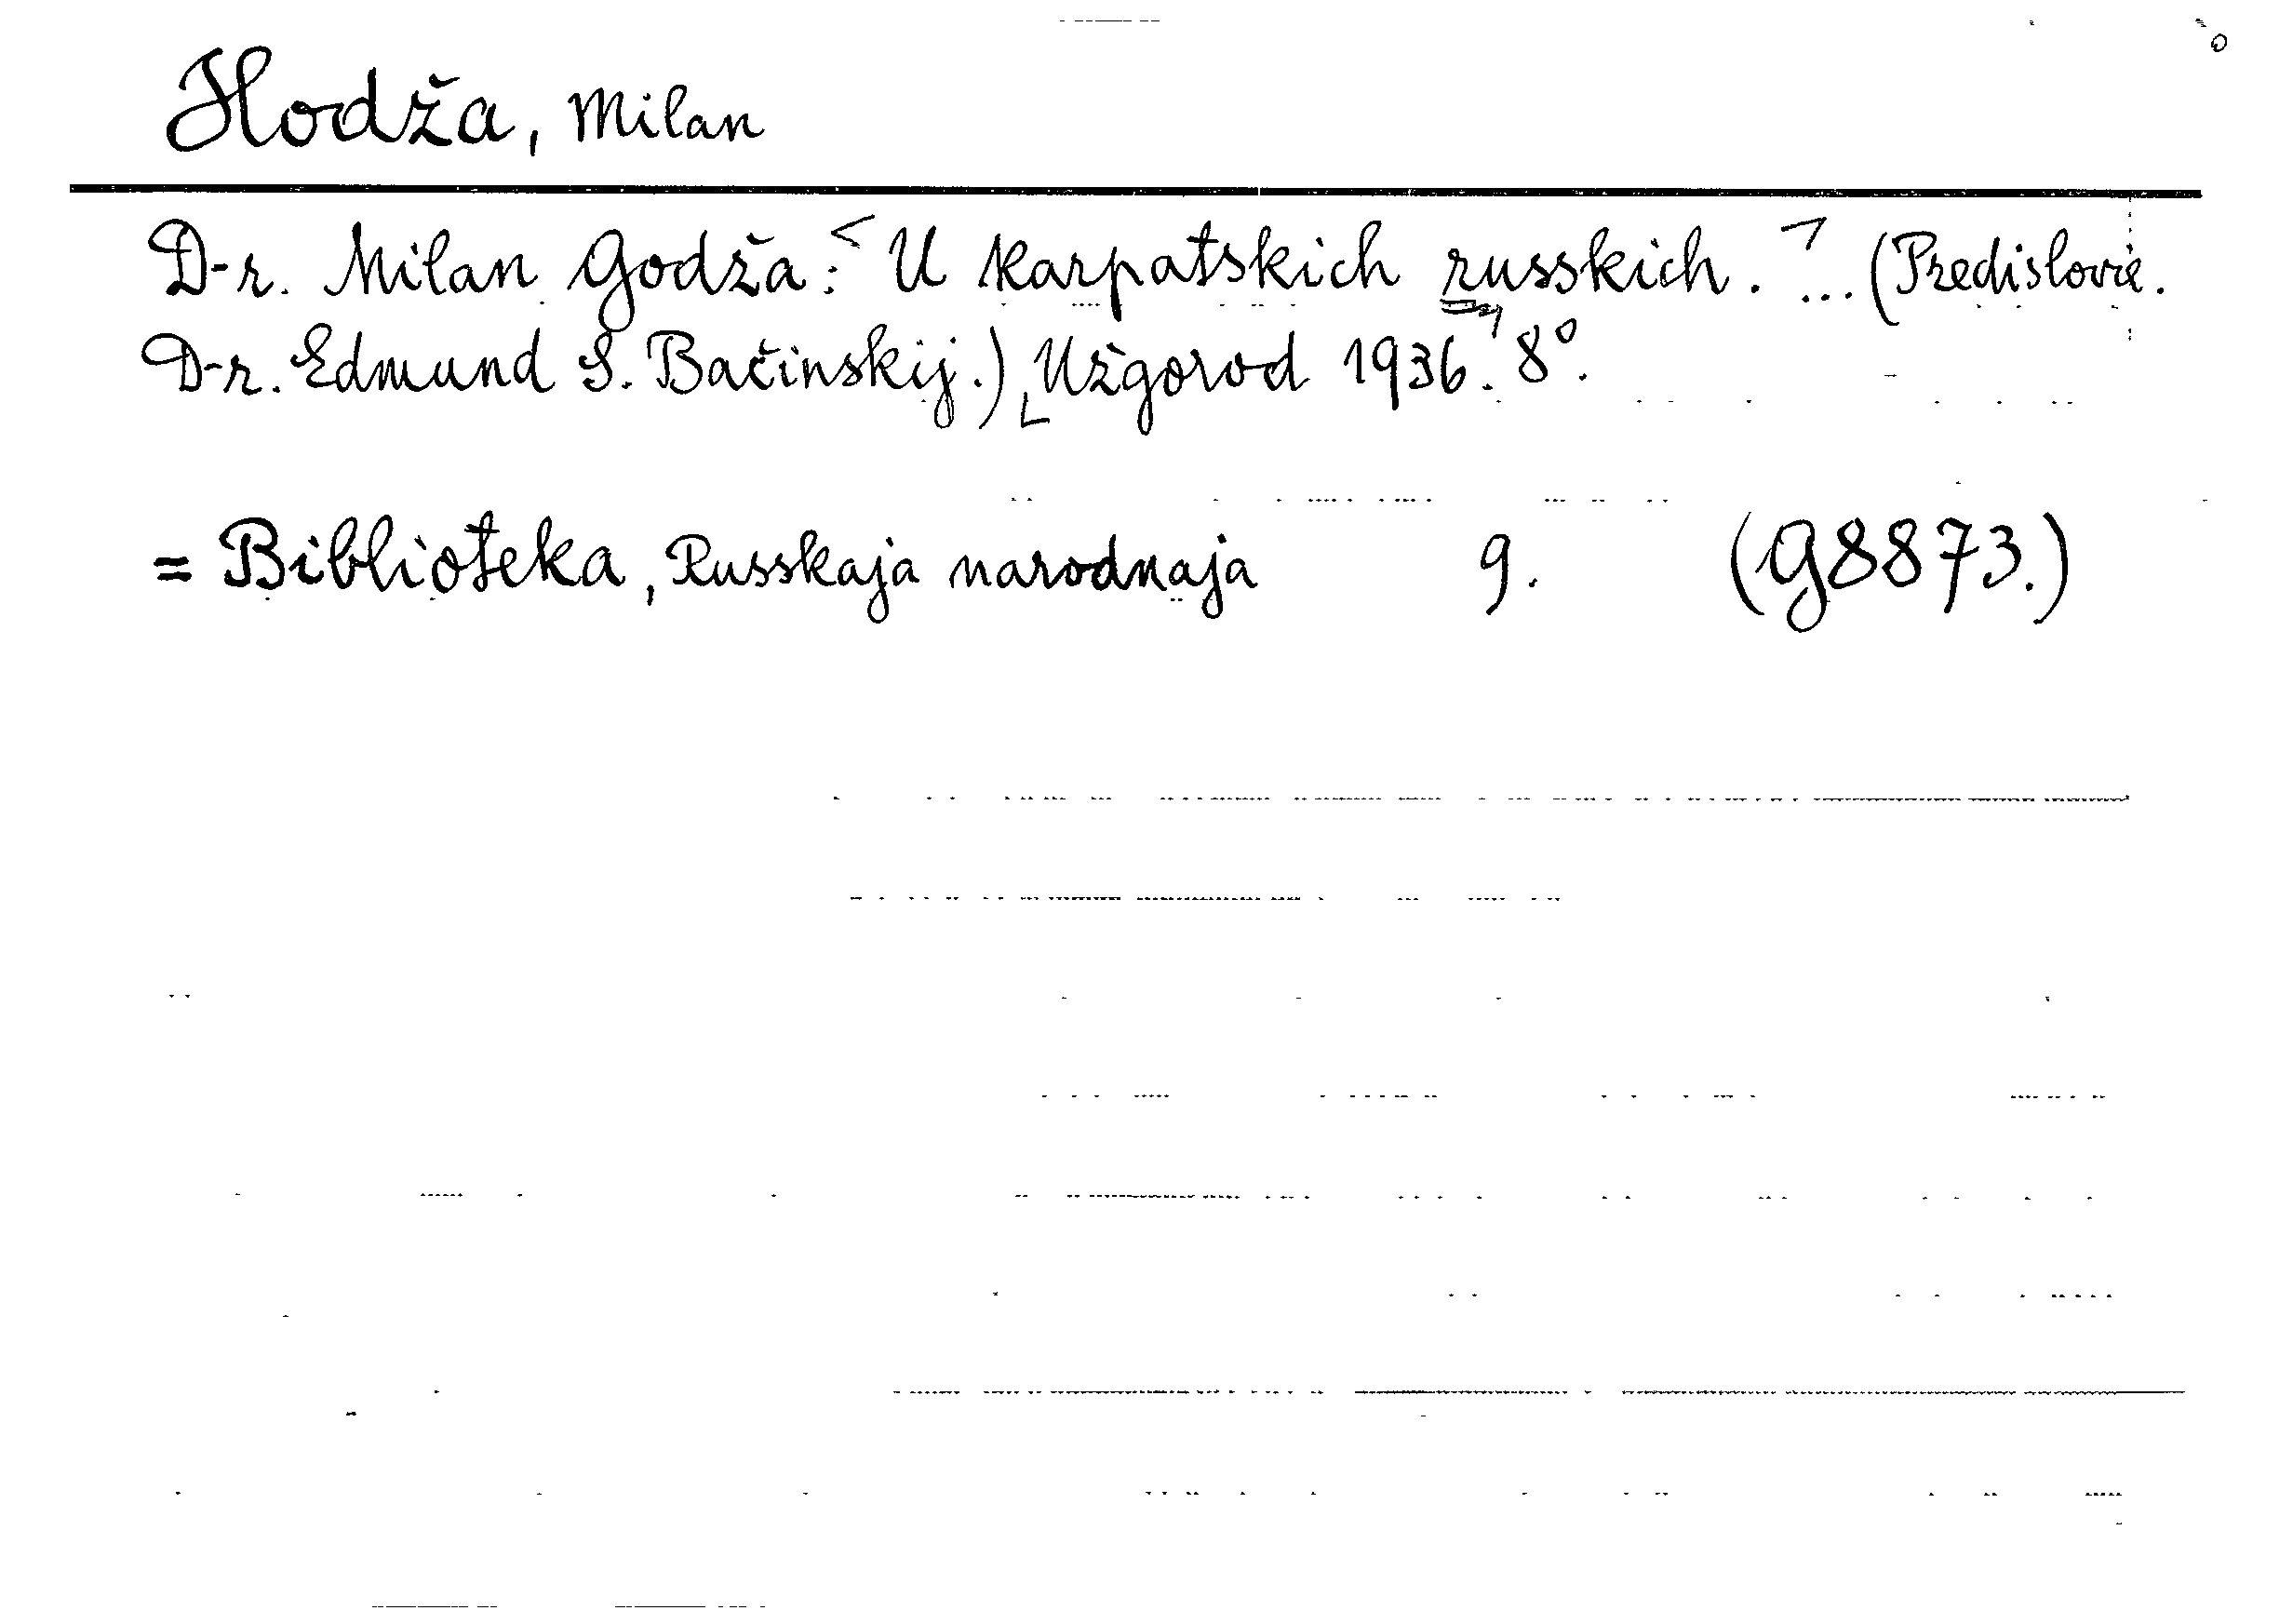 Hodža, Milan
D-r. Milan Godža: U karpatskich russkich. ... (Predislovie.
D-r. Edmund S. Bačinskij.) Užgorod 1936. 8°.
= Biblioteka, Russkaja narodnaja 9. (G8873.)